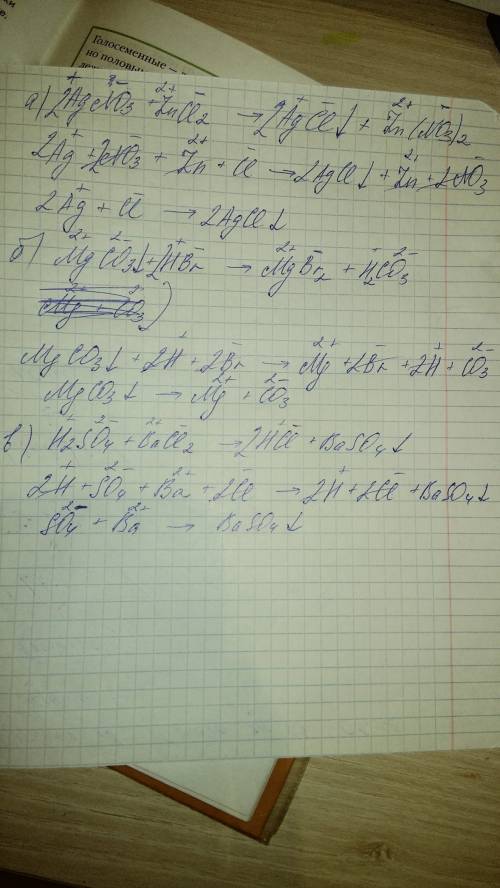 Голосеменные –
но половы
а) 2AgNO₃ + ZnCl₂ → 2AgCl↓ + Zn(NO₃)₂
2Ag⁺ + 2NO₃⁻ + Zn²⁺ + Cl⁻ → 2AgCl↓ + Zn²⁺ + 2NO₃⁻
2Ag⁺ + Cl⁻ → 2AgCl↓
б) MgCO₃↓ + 2HBr → MgBr₂ + H₂CO₃
Mg + CO₃
MgCO₃↓ + 2H⁺ + 2Br⁻ → Mg²⁺ + 2Br⁻ + 2H⁺ + CO₃²⁻
MgCO₃↓ → Mg²⁺ + CO₃²⁻
в) H₂SO₄ + BaCl₂ → 2HCl + BaSO₄↓
2H⁺ + SO₄²⁻ + Ba²⁺ + 2Cl⁻ → 2H⁺ + 2Cl⁻ + BaSO₄↓
SO₄²⁻ + Ba²⁺ → BaSO₄↓